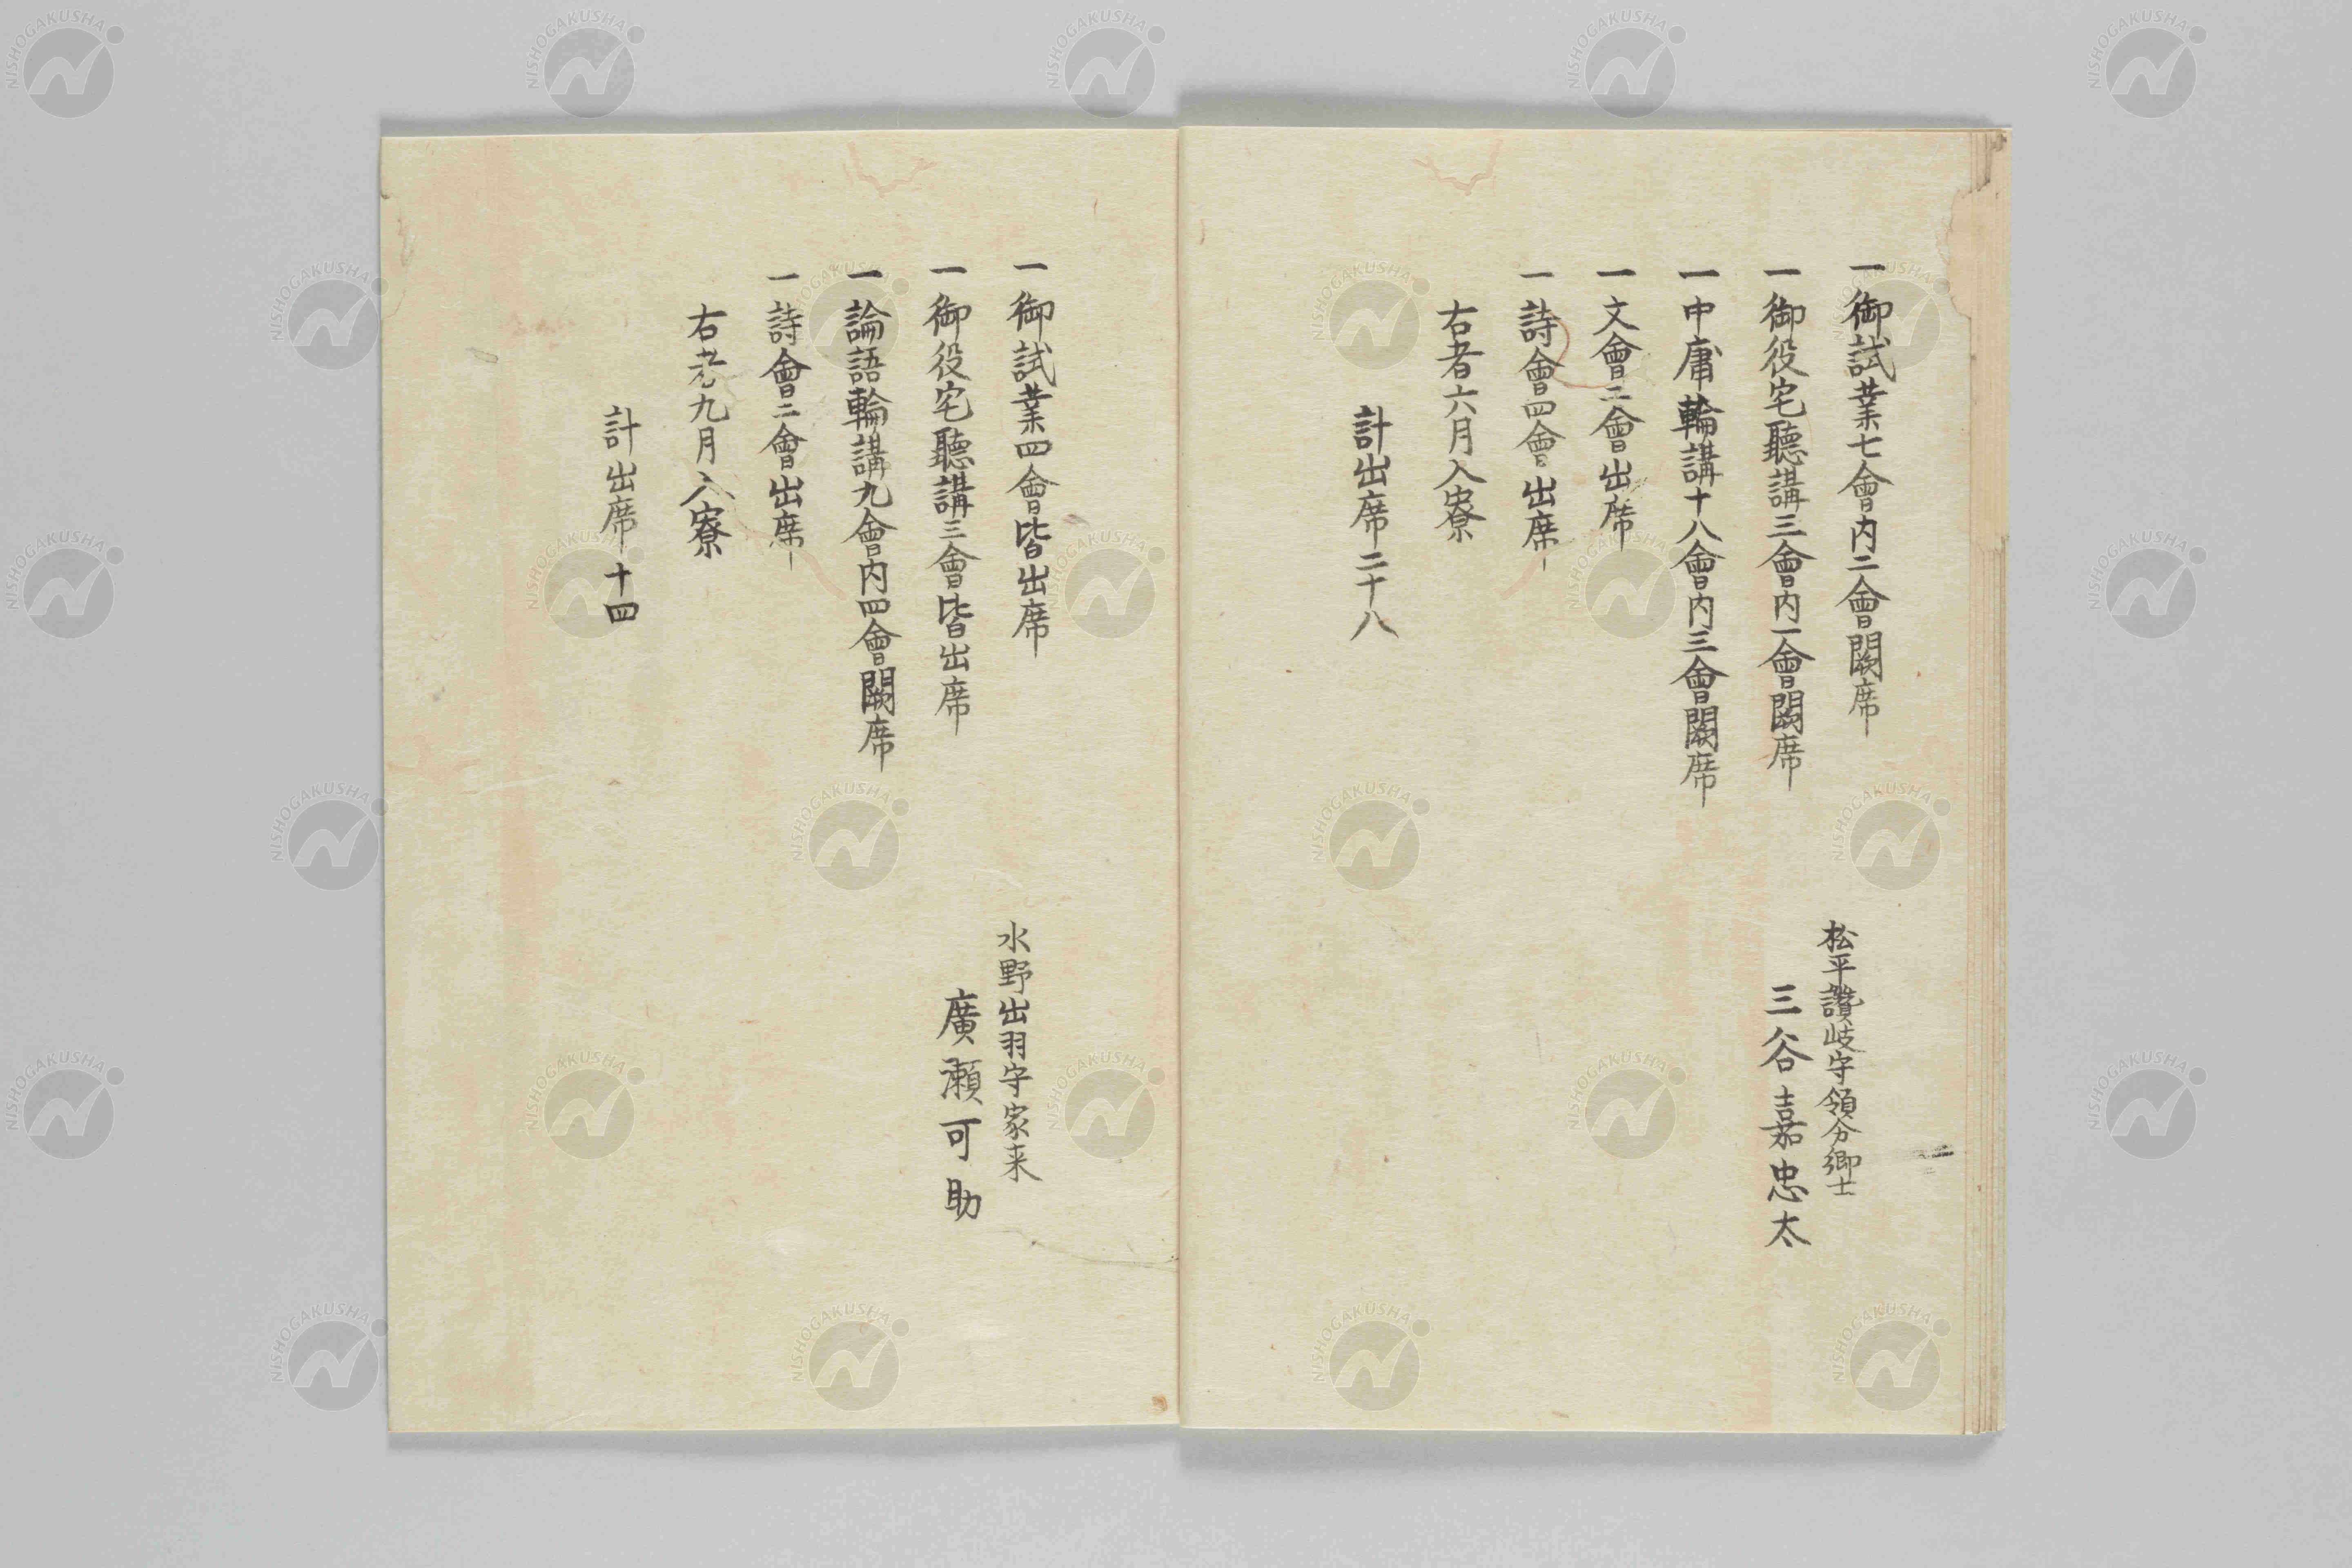 松平讃岐守領分郷士
三谷嘉忠太
一御試業七會内二會闕席
一御役宅聽講三會内一會闕席
一中庸輪講十八會内三會闕席
一文會二會出席
一詩會四會出席
右者六月入寮
計出席二十八
水野出羽守家来
廣瀬可助
一御試業四會皆出席
一御役宅聽講三會皆出席
一論語輪講九會内四會闕席
一詩會二會出席
右者九月入寮
計出席十四
NISHOGAKUSHA